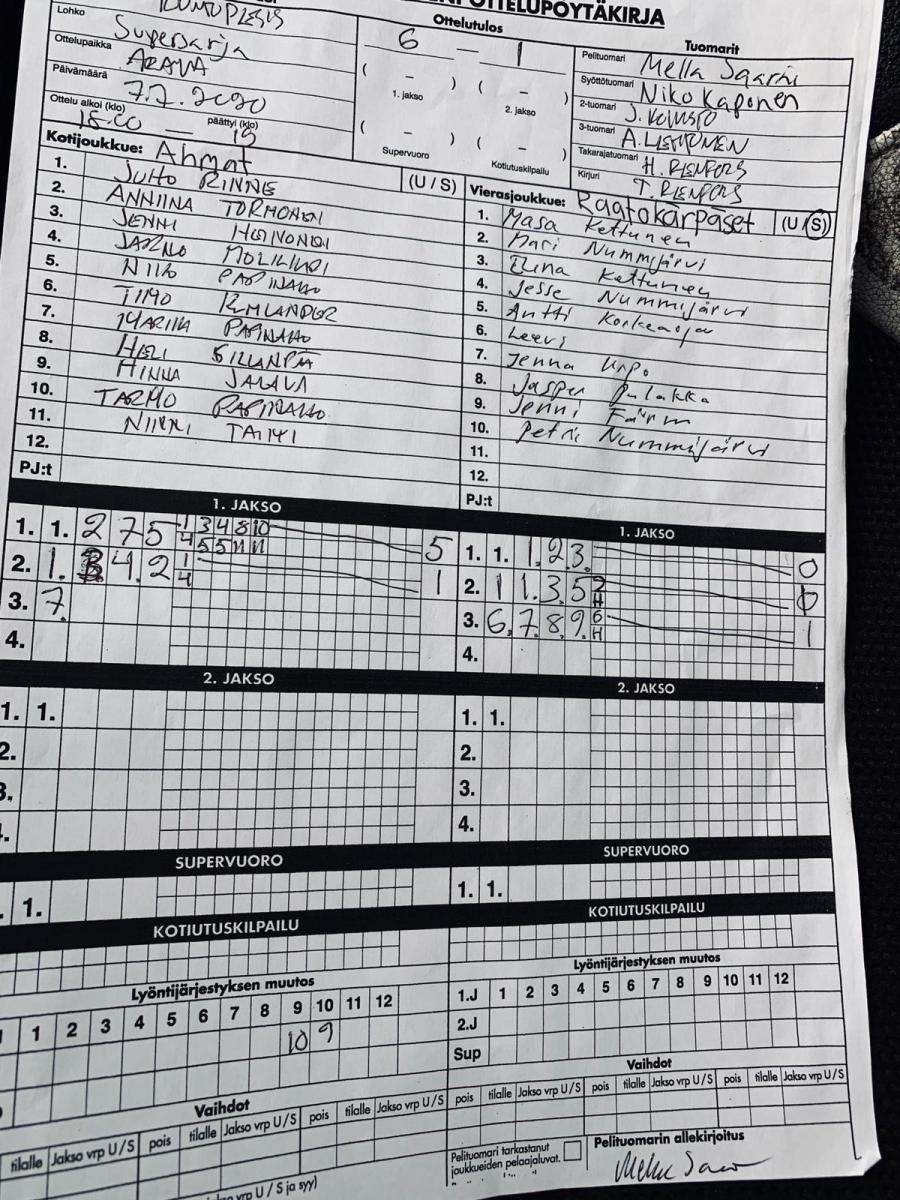 OTTELUPÖYTÄKIRJA
Lohko
Supersarja
Ottelupaikka
ARAVA
Päivämäärä
7.7.2020
Ottelu alkoi (klo) päättyi (klo)
18.00 — 19
Ottelutulos
6 — 1
( – ) ( – )
1. jakso 2. jakso
( – ) ( – )
Supervuoro Kotiutuskilpailu
Tuomarit
Pelituomari Mella Saarni
Syöttötuomari Niko Kaponen
2-tuomari
3-tuomari
Takarajatuomari H. RENFORS
Kirjuri T. RENFORS
Kotijoukkue: Ahmat (U / S)
1. JUHO RINNE
2. ANNIINA TÖRMÖNEN
3. JENNI HEINONEN
4. JARNO
5. NIKO
6. TIMO
7. MARIKA
8. HELI SILLANPÄÄ
9. MINNA JALAVA
10. TARMO
11. NINNI TAIMI
12.
PJ:t
Vierasjoukkue: Raatokärpäset (U / S)
1. Masa Kettunen
2. Mari Nummijärvi
3. Elina Kettunen
4. Jesse Nummijärvi
5. Antti Korkeaoja
6. Leevi
7. Jenna Urpo
8. Jasper Pulakka
9. Jenni Färm
10. Petri Nummijärvi
11.
12.
PJ:t
1. JAKSO
1. 1. 2 7 5 1 3 4 8 10 5
4 5 5 11 11
2. 1. 3 4. 2 1 1
4
3. 7.
4.
1. JAKSO
1. 1. 1. 2. 3. 0
2. 1 1. 3. 5 2 0
H
3. 6. 7. 8. 9. 6 1
H
4.
2. JAKSO
1. 1.
2.
3.
4.
2. JAKSO
1. 1.
2.
3.
4.
SUPERVUORO
1.
SUPERVUORO
1. 1.
KOTIUTUSKILPAILU
KOTIUTUSKILPAILU
Lyöntijärjestyksen muutos
1 2 3 4 5 6 7 8 9 10 11 12
10 9
Lyöntijärjestyksen muutos
1.J 1 2 3 4 5 6 7 8 9 10 11 12
2.J
Sup
Vaihdot
tilalle Jakso vrp U/S pois tilalle Jakso vrp U/S pois tilalle Jakso vrp U/S
Vaihdot
pois tilalle Jakso vrp U/S pois tilalle Jakso vrp U/S pois tilalle Jakso vrp U/S
vrp U/S ja syy)
Pelituomari tarkastanut
joukkueiden pelaajaluvat.
Pelituomarin allekirjoitus